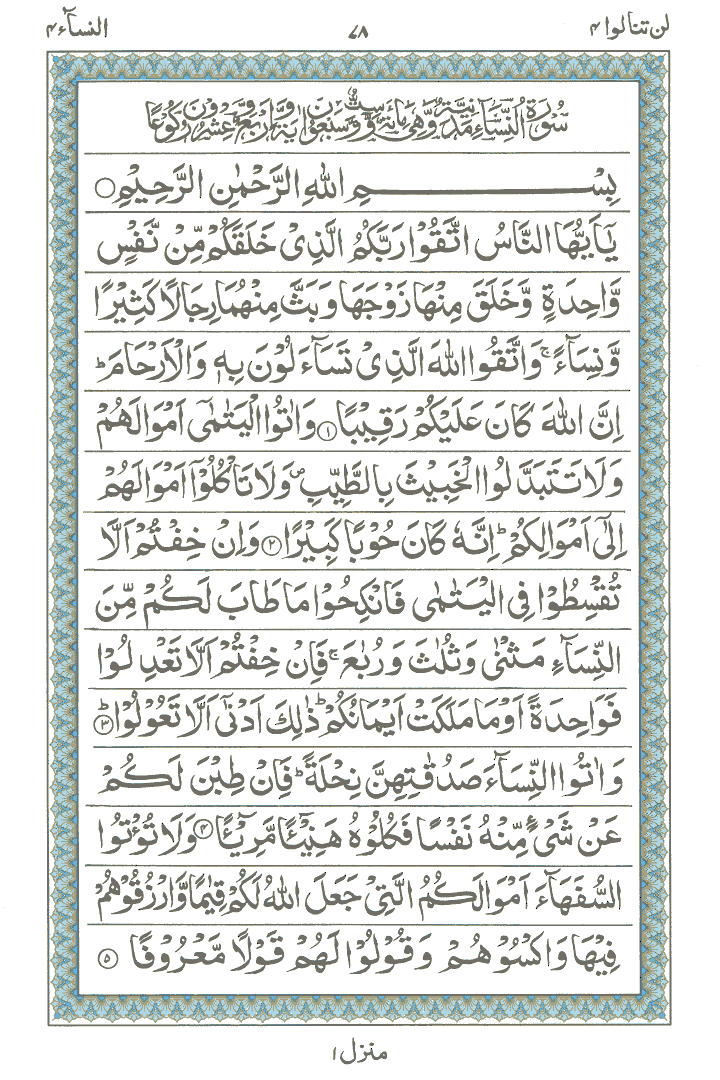 لن تنالوا ۴ ۷۸ النسآء ۴
سُوْرَةُ النِّسَآءِ مَدَنِیَّةٌ وَّهِیَ مِائَةٌ وَّسِتٌّ وَّسَبْعُوْنَ اٰیَةً وَّاَرْبَعٌ وَّعِشْرُوْنَ رُكُوْعًا
بِسْمِ اللّٰهِ الرَّحْمٰنِ الرَّحِیْمِ
یٰۤاَیُّهَا النَّاسُ اتَّقُوْا رَبَّكُمُ الَّذِیْ خَلَقَكُمْ مِّنْ نَّفْسٍ
وَّاحِدَةٍ وَّخَلَقَ مِنْهَا زَوْجَهَا وَبَثَّ مِنْهُمَا رِجَالًا كَثِیْرًا
وَّنِسَآءً ۚ وَاتَّقُوا اللّٰهَ الَّذِیْ تَسَآءَلُوْنَ بِهٖ وَالْاَرْحَامَ ؕ
اِنَّ اللّٰهَ كَانَ عَلَیْكُمْ رَقِیْبًا ۱ وَاٰتُوا الْیَتٰمٰۤی اَمْوَالَهُمْ
وَلَا تَتَبَدَّلُوا الْخَبِیْثَ بِالطَّیِّبِ ۪ وَلَا تَاْكُلُوْۤا اَمْوَالَهُمْ
اِلٰۤی اَمْوَالِكُمْ ؕ اِنَّهٗ كَانَ حُوْبًا كَبِیْرًا ۲ وَاِنْ خِفْتُمْ اَلَّا
تُقْسِطُوْا فِی الْیَتٰمٰی فَانْكِحُوْا مَا طَابَ لَكُمْ مِّنَ
النِّسَآءِ مَثْنٰی وَثُلٰثَ وَرُبٰعَ ۚ فَاِنْ خِفْتُمْ اَلَّا تَعْدِلُوْا
فَوَاحِدَةً اَوْ مَا مَلَكَتْ اَیْمَانُكُمْ ؕ ذٰلِكَ اَدْنٰۤی اَلَّا تَعُوْلُوْا ؕ ۳
وَاٰتُوا النِّسَآءَ صَدُقٰتِهِنَّ نِحْلَةً ؕ فَاِنْ طِبْنَ لَكُمْ
عَنْ شَیْءٍ مِّنْهُ نَفْسًا فَكُلُوْهُ هَنِیْٓئًا مَّرِیْٓئًا ۴ وَلَا تُؤْتُوا
السُّفَهَآءَ اَمْوَالَكُمُ الَّتِیْ جَعَلَ اللّٰهُ لَكُمْ قِیٰمًا وَّارْزُقُوْهُمْ
فِیْهَا وَاكْسُوْهُمْ وَقُوْلُوْا لَهُمْ قَوْلًا مَّعْرُوْفًا ۵
منزل ۱